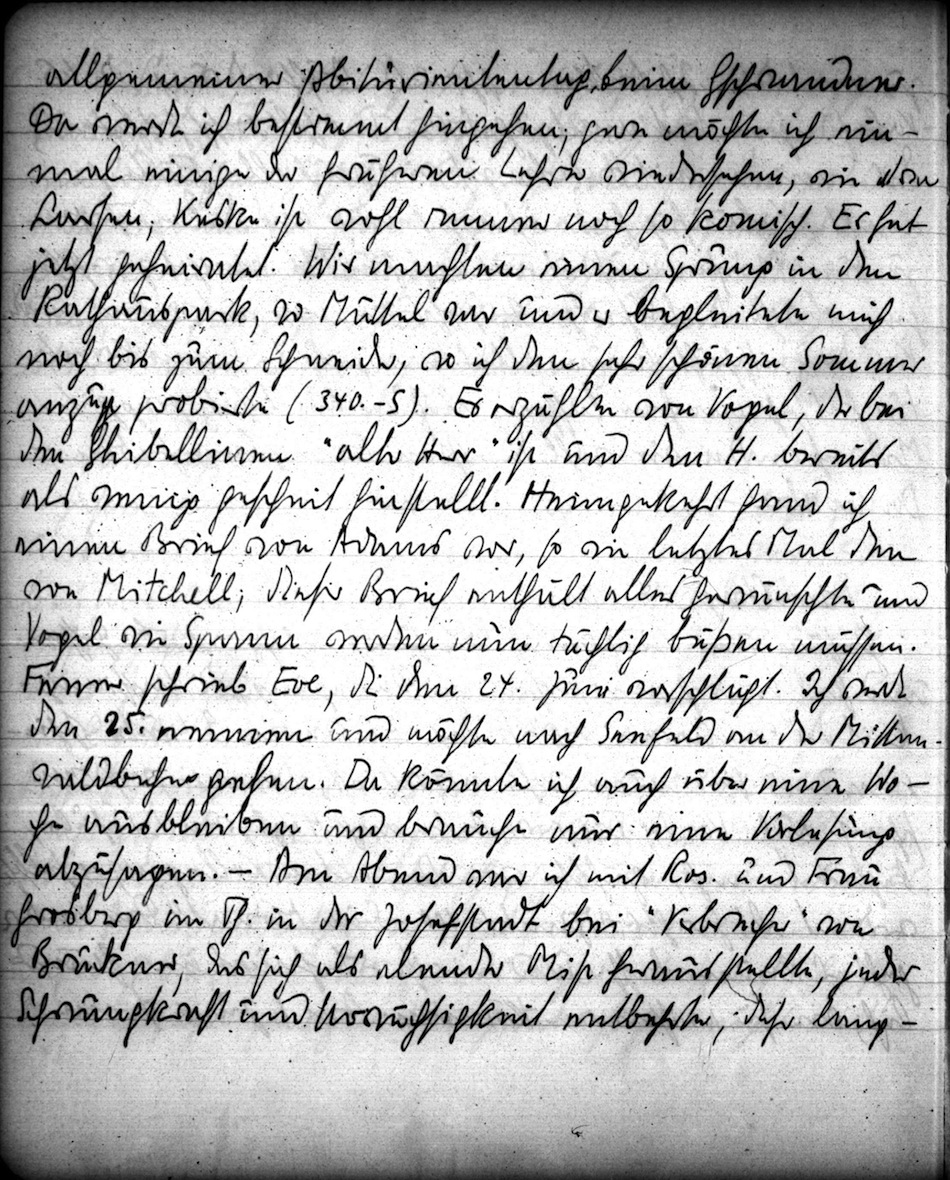 allgemeiner Abiturientag, beim Gschwandner.
Da werde ich bestimmt hingehen; gern möchte ich ein-
mal einige der früheren Lehrer wiedersehen, wie den
Larsen; Kuske ist wohl immer noch so komisch. Er hat
jetzt geheiratet. Wir machten einen Sprung in den
Rathauspark, wo Müttel war und er begleitete mich
noch bis zum Schneider, wo ich den sehr schönen Sommer
anzug probierte (340.-S). Er erzählte von Vogel, der bei
den Ghibellinen "alter Herr" ist und den H. bereits
als wenig gescheit hinstellt. Heimgekehrt fand ich
einen Brief von Adams vor, so wie letztes Mal den
von Mitchell; dieser Brief enthält alles Gewünschte und
Vogel wie Spann werden nun tüchtig büßen müssen.
Ferner schrieb Eve, die den 24. Juni vorschlägt. Ich werde
den 25. nennen und möchte nach Seefeld an der Mitten-
waldbahn gehen. Da könnte ich auch über eine Wo-
che ausbleiben und brauche nur eine Vorlesung
abzusagen. – Am Abend war ich mit Ros. und Frau
Grosberg im Th. in der Josefstadt bei "Verbrecher" von
Bruckner, das sich als elender Mist herausstellte, jeder
Schwungkraft und Wortwüchsigkeit entbehrte, sehr lang-